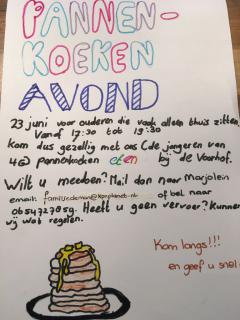 PANNEN-
KOEKEN
AVOND
23 juni voor ouderen die vaak alleen thuis zitten.
Vanaf 17:30 tot 19:30
Kom dus gezellig met ons (de jongeren van
4G) pannenkoeken eten bij de Voorhof.
Wilt u meedoen? Mail dan naar Marjolein
email: @kpnplanet.nl of bel naar
0654727859. Heeft u geen vervoer? Kunnen
wij wat regelen.
Kom langs!!!
en geef u snel